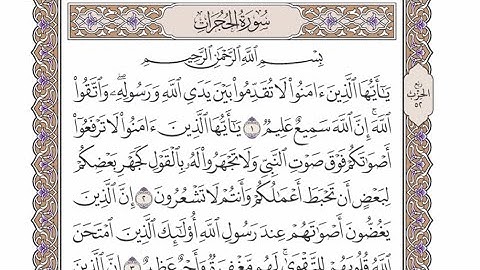 سُورَةُ الحُجُرَاتِ
بِسْمِ ٱللَّهِ ٱلرَّحْمَٰنِ ٱلرَّحِيمِ
يَٰٓأَيُّهَا ٱلَّذِينَ ءَامَنُوا۟ لَا تُقَدِّمُوا۟ بَيْنَ يَدَىِ ٱللَّهِ وَرَسُولِهِۦ ۖ وَٱتَّقُوا۟
ٱللَّهَ ۚ إِنَّ ٱللَّهَ سَمِيعٌ عَلِيمٌ ١ يَٰٓأَيُّهَا ٱلَّذِينَ ءَامَنُوا۟ لَا تَرْفَعُوٓا۟
أَصْوَٰتَكُمْ فَوْقَ صَوْتِ ٱلنَّبِىِّ وَلَا تَجْهَرُوا۟ لَهُۥ بِٱلْقَوْلِ كَجَهْرِ بَعْضِكُمْ
لِبَعْضٍ أَن تَحْبَطَ أَعْمَٰلُكُمْ وَأَنتُمْ لَا تَشْعُرُونَ ٢ إِنَّ ٱلَّذِينَ
يَغُضُّونَ أَصْوَٰتَهُمْ عِندَ رَسُولِ ٱللَّهِ أُو۟لَٰٓئِكَ ٱلَّذِينَ ٱمْتَحَنَ
ٱللَّهُ قُلُوبَهُمْ لِلتَّقْوَىٰ ۚ لَهُم مَّغْفِرَةٌ وَأَجْرٌ عَظِيمٌ ٣ إِنَّ ٱلَّذِينَ
ربع
الحزب
٥٢